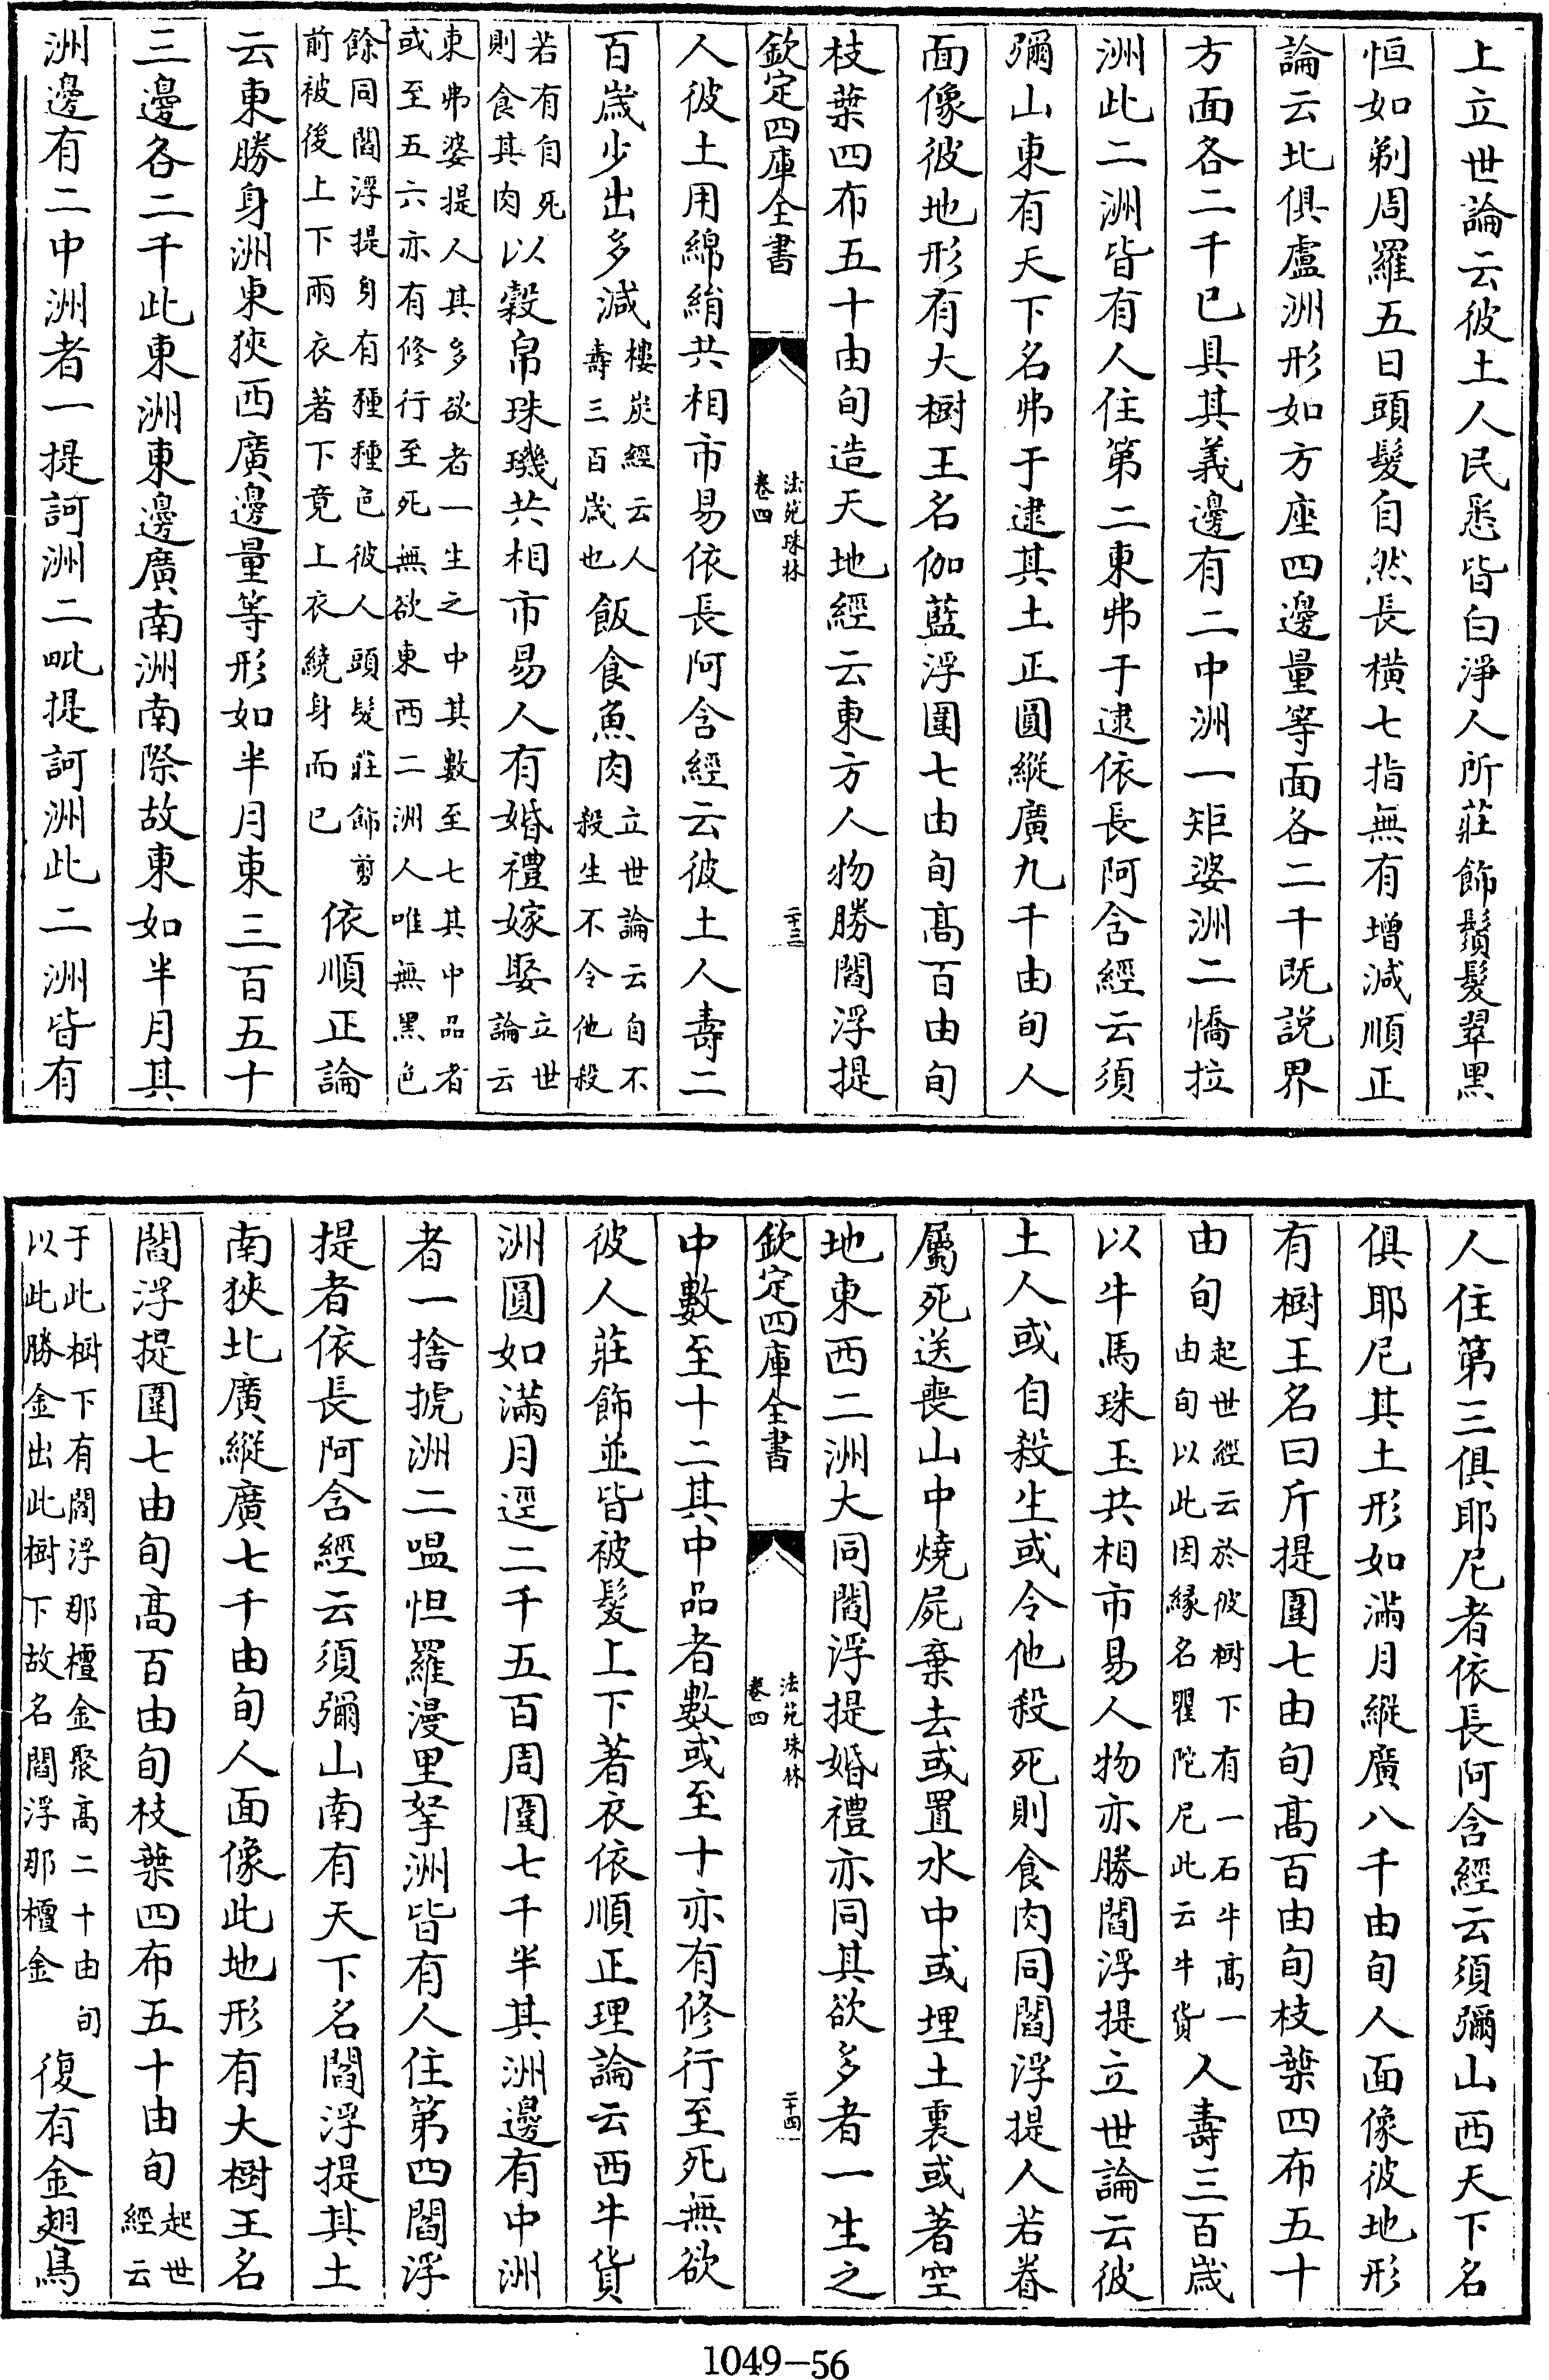 上立世論云彼土人民悉皆白淨人所莊飾鬚髮翠黑
恒如剃周羅五日頭髮自然長横七指無有增減順正
論云北俱盧洲形如方座四邊量等面各二千既説界
方面各二千已具其義邊有二中洲一矩婆洲二憍拉
洲此二洲皆有人住第二東弗于逮依長阿含經云須
彌山東有天下名弗于逮其土正圓縱廣九千由旬人
面像彼地形有大樹王名伽藍浮圍七由旬髙百由旬
枝葉四布五十由旬造天地經云東方人物勝閻浮提
欽定四庫全書
法苑珠林
卷四
二十三
人彼土用綿絹共相市易依長阿含經云彼土人壽二
百歲少出多減樓炭經云人壽三百歲也飯食魚肉立世論云自不殺生不令他殺
若有自死則食其肉以縠帛珠璣共相市易人有婚禮嫁娶立世論云
東弗婆提人其多欲者一生之中其數至七其中品者或至五六亦有修行至死無欲東西二洲人唯無黑色
餘同閻浮提身有種種色彼人頭髮莊飾剪前被後上下兩衣著下竟上衣繞身而已依順正論
云東勝身洲東狹西廣邊量等形如半月東三百五十
三邊各二千此東洲東邊廣南洲南際故東如半月其
洲邊有二中洲者一提訶洲二毗提訶洲此二洲皆有
人住第三俱耶尼者依長阿含經云須彌山西天下名
俱耶尼其土形如滿月縱廣八千由旬人面像彼地形
有樹王名曰斤提圍七由旬髙百由旬枝葉四布五十
由旬起世經云於彼樹下有一石牛髙一由旬以此因縁名瞿陀尼此云牛貨人壽三百歲
以牛馬珠玉共相市易人物亦勝閻浮提立世論云彼
土人或自殺生或令他殺死則食肉同閻浮提人若眷
屬死送喪山中燒屍棄去或置水中或埋土裏或著空
地東西二洲大同閻浮提婚禮亦同其欲多者一生之
欽定四庫全書
法苑珠林
卷四
二十四
中數至十二其中品者數或至十亦有修行至死無欲
彼人莊飾並皆被髮上下著衣依順正理論云西牛貨
洲圓如滿月逕二千五百周圍七千半其洲邊有中洲
者一捨搋洲二嗢怛羅漫里拏洲皆有人住第四閻浮
提者依長阿含經云須彌山南有天下名閻浮提其土
南狹北廣縱廣七千由旬人面像此地形有大樹王名
閻浮提圍七由旬髙百由旬枝葉四布五十由旬起世經云
于此樹下有閻浮那檀金聚髙二十由旬以此勝金出此樹下故名閻浮那檀金復有金翅鳥
1049-56